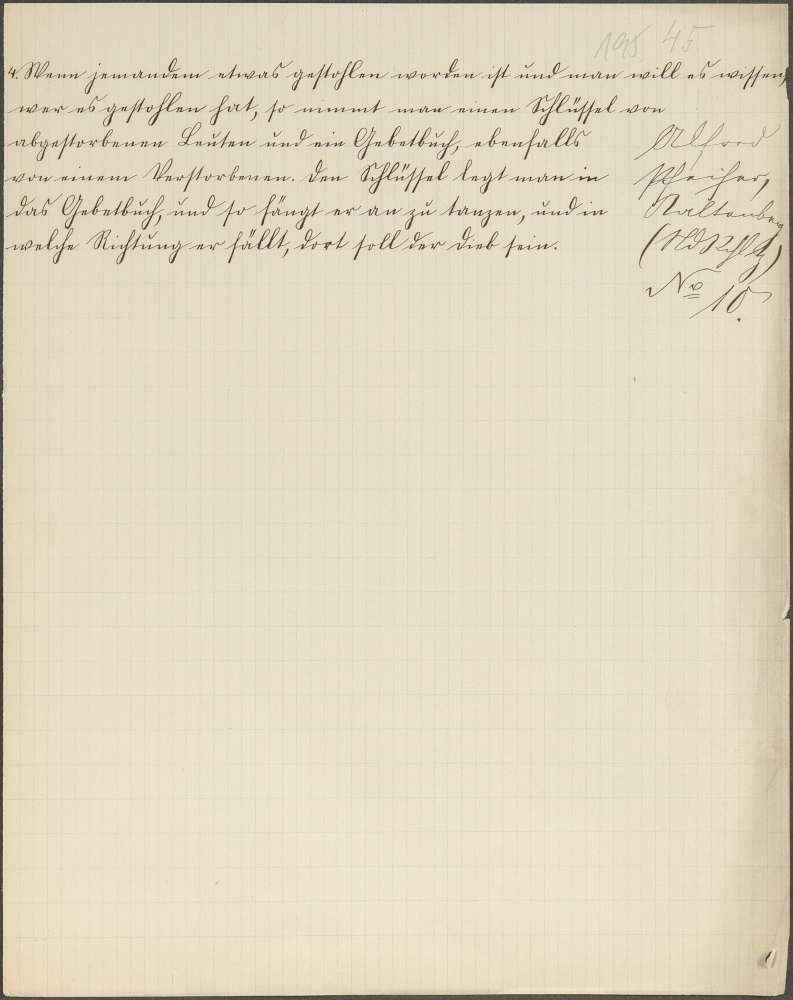 45.
4. Wenn jemandem etwas gestohlen worden ist und man will es wissen,
wer es gestohlen hat, so nimmt man einen Schlüssel von
abgestorbenen Leuten und ein Gebetbuch, ebenfalls
von einem Verstorbenen. Den Schlüssel legt man in
das Gebetbuch, und so fängt er an zu tanzen, und in
welche Richtung er fällt, dort soll der Dieb sein.
Alfred
Kaltenberg
No 10.